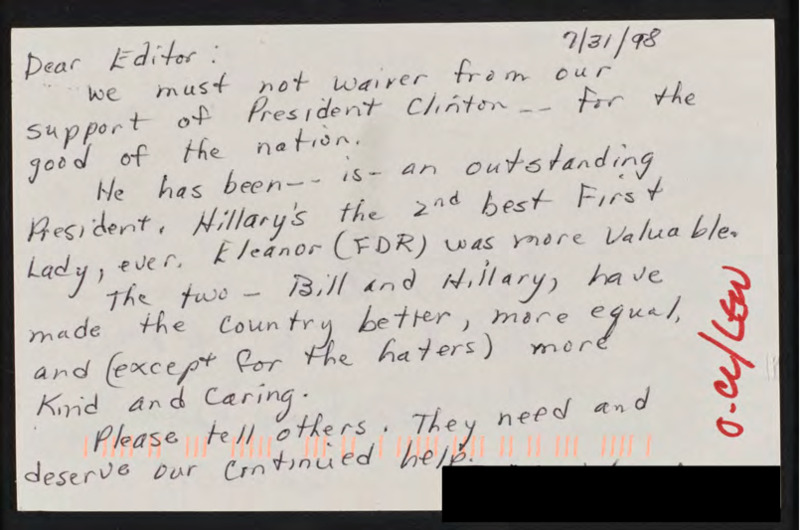 7/31/98
Dear Editor:
We must not waiver from our
support of President Clinton -- for the
good of the nation.
He has been -- is - an outstanding
President. Hillary's the 2nd best First
Lady, ever. Eleanor (FDR) was more valuable.
The two - Bill and Hillary, have
made the country better, more equal,
and (except for the haters) more
Kind and Caring.
Please tell others. They need and
deserve our continued help.